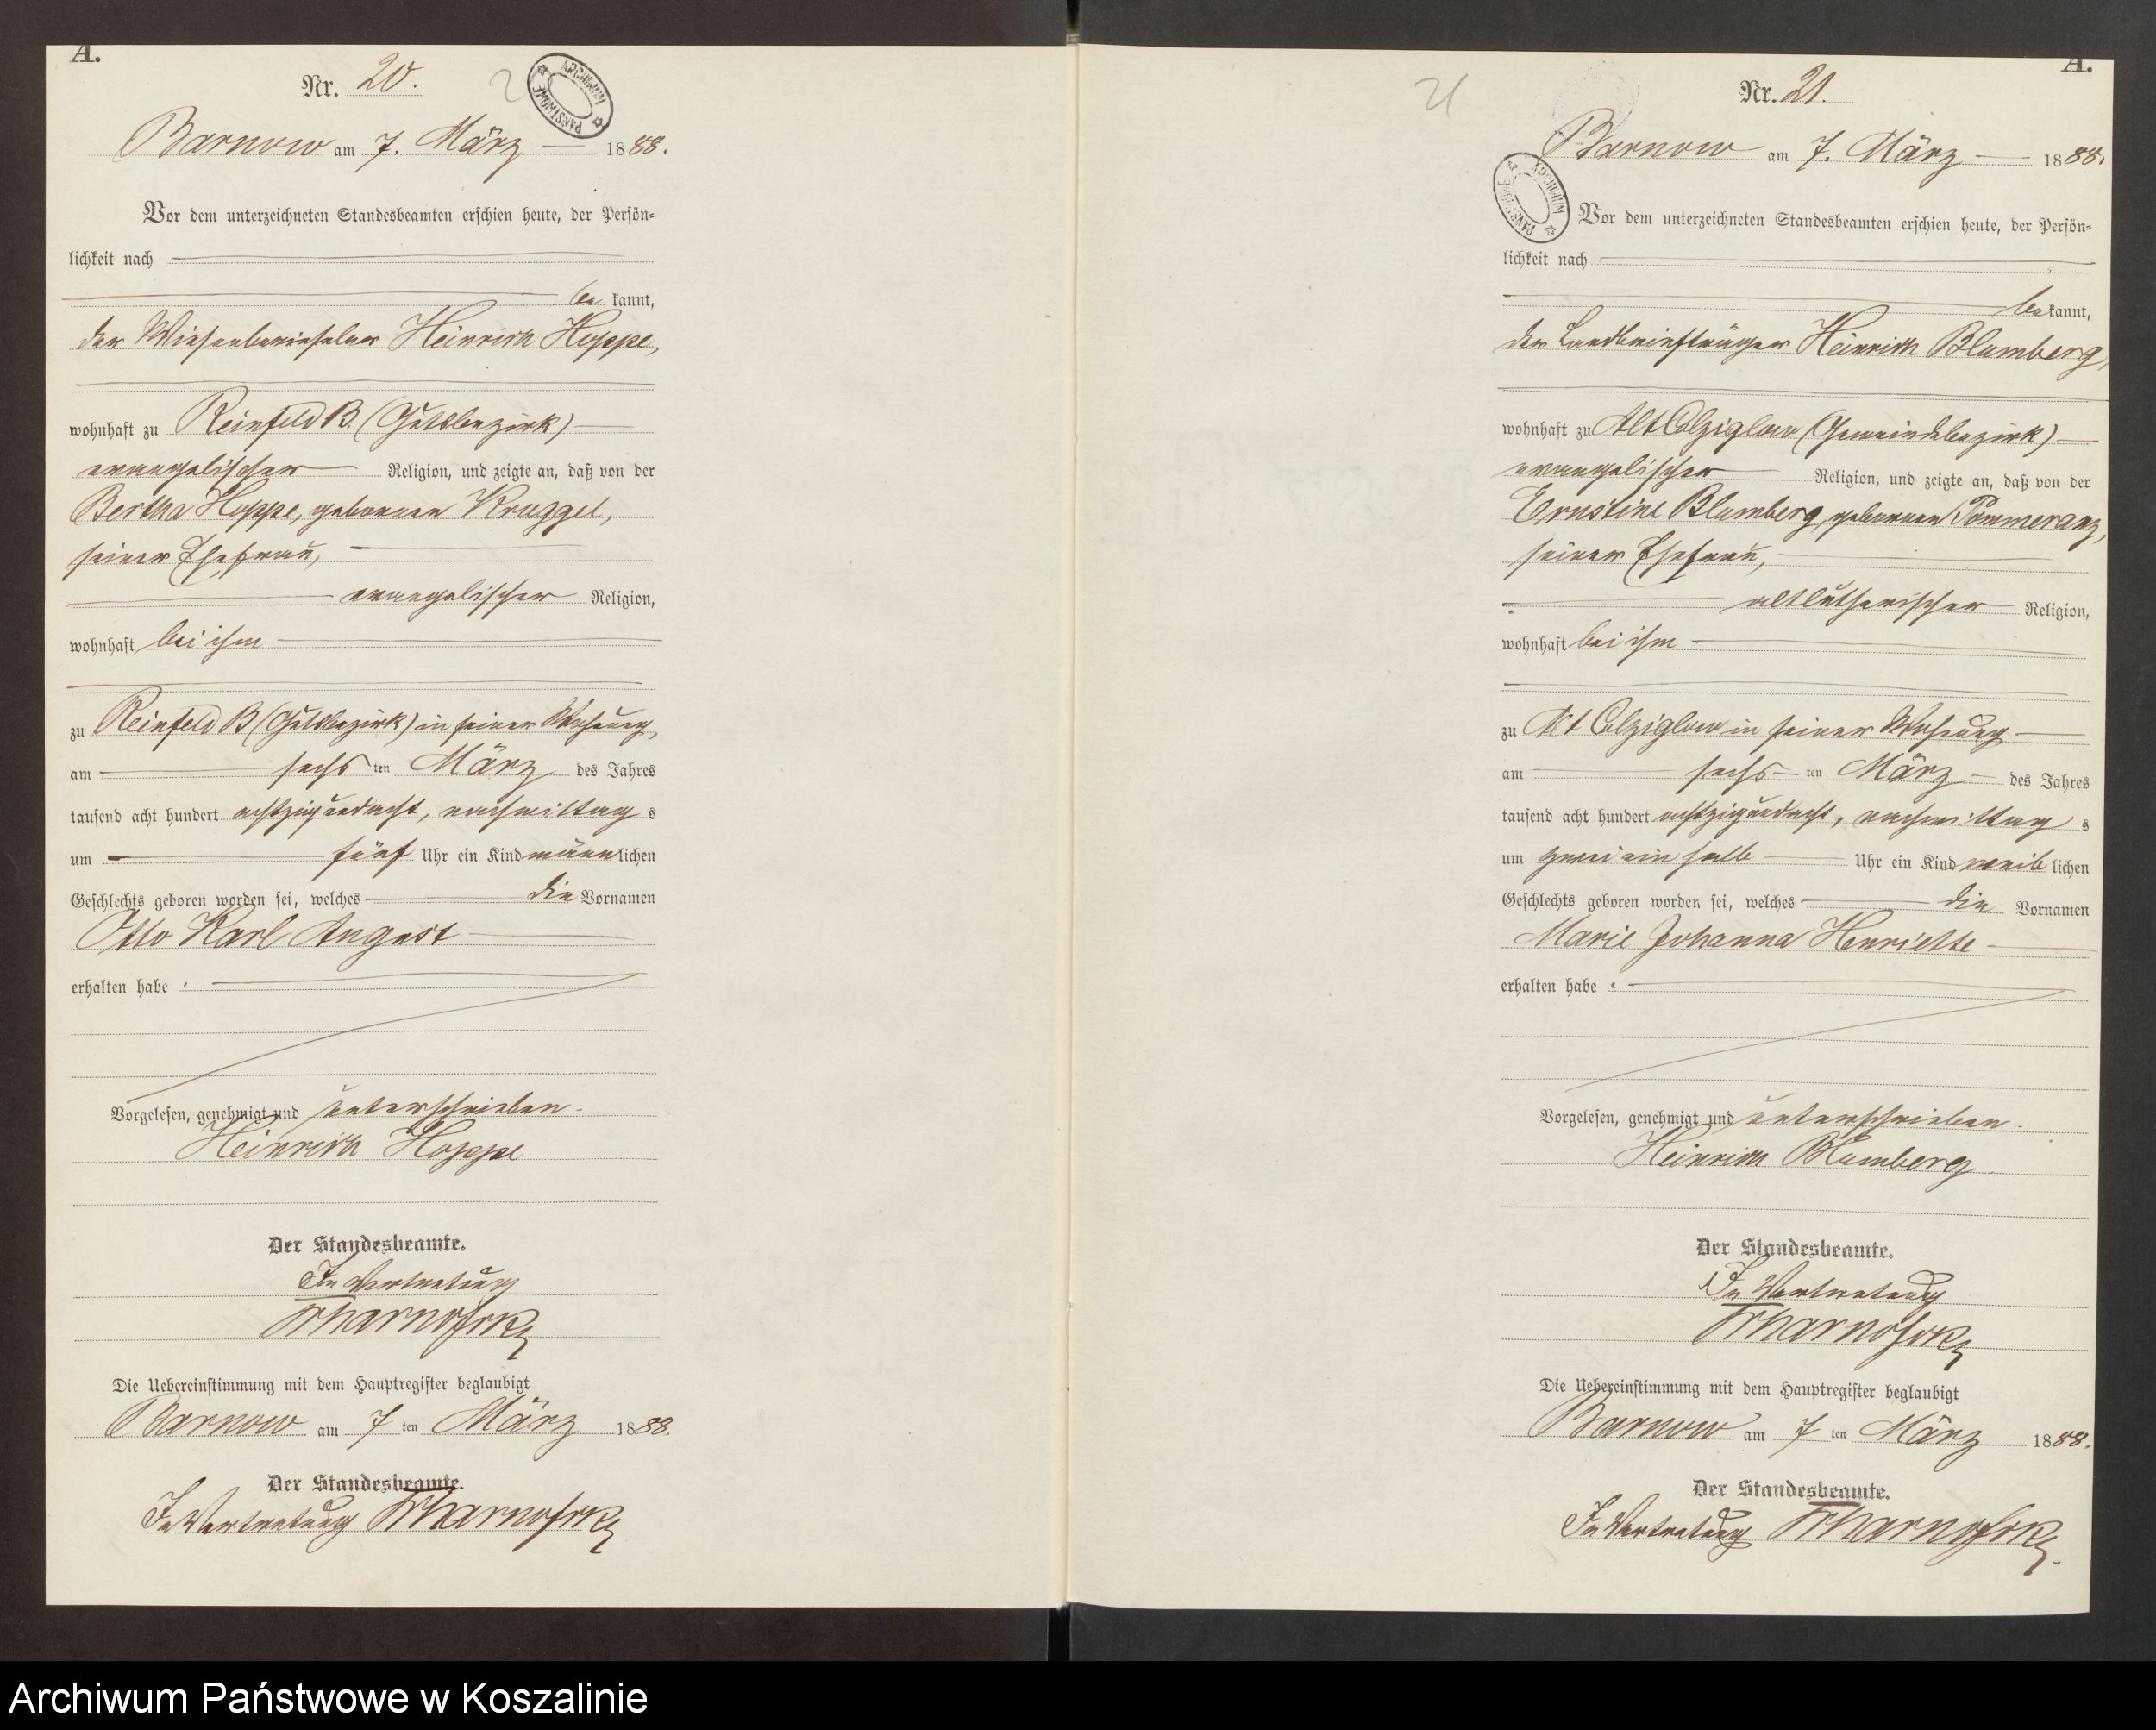 A.
Nr. 20.
ARCHIWUM PAŃSTWOWE
Barnow am 7. März 1888.
Vor dem unterzeichneten Standesbeamten erschien heute, der Persön=
lichkeit nach
be kannt,
der Wiesenberieselner Heinrich Hoppe,
wohnhaft zu Reinfeld B. (Gutsbezirk)
evangelischer Religion, und zeigte an, daß von der
Bertha Hoppe, geborenen Kruggel,
seiner Ehefrau,
evangelischer Religion,
wohnhaft bei ihm
zu Reinfeld B (Gutsbezirk) in seiner Wohnung,
am sechs ten März des Jahres
tausend acht hundert achtzigundacht, nachmittag s
um fünf Uhr ein Kind männlichen
Geschlechts geboren worden sei, welches die Vornamen
Otto Karl August
erhalten habe.
Vorgelesen, genehmigt und unterschrieben.
Heinrich Hoppe
Der Standesbeamte.
In Vertretung
Die Uebereinstimmung mit dem Hauptregister beglaubigt
Barnow am 7 ten März 1888.
Der Standesbeamte.
In Vertretung
21
A.
Nr. 21.
ARCHIWUM PAŃSTWOWE
Barnow am 7. März 1888.
Vor dem unterzeichneten Standesbeamten erschien heute, der Persön=
lichkeit nach
bekannt,
der Landbriefträger Heinrich Blumberg,
wohnhaft zu Alt Colziglow (Gemeindebezirk)
evangelischer Religion, und zeigte an, daß von der
Ernstine Blumberg, geborenen Pommeranz,
seiner Ehefrau,
altlutherischer Religion,
wohnhaft bei ihm
zu Alt Colziglow in seiner Wohnung
am sechs ten März des Jahres
tausend acht hundert achtzigundacht, nachmittag s
um zwei ein halb Uhr ein Kind weib lichen
Geschlechts geboren worden sei, welches die Vornamen
Marie Johanna Henriette
erhalten habe.
Vorgelesen, genehmigt und unterschrieben.
Heinrich Blumberg
Der Standesbeamte.
In Vertretung
Die Uebereinstimmung mit dem Hauptregister beglaubigt
Barnow am 7 ten März 1888.
Der Standesbeamte.
In Vertretung
Archiwum Państwowe w Koszalinie